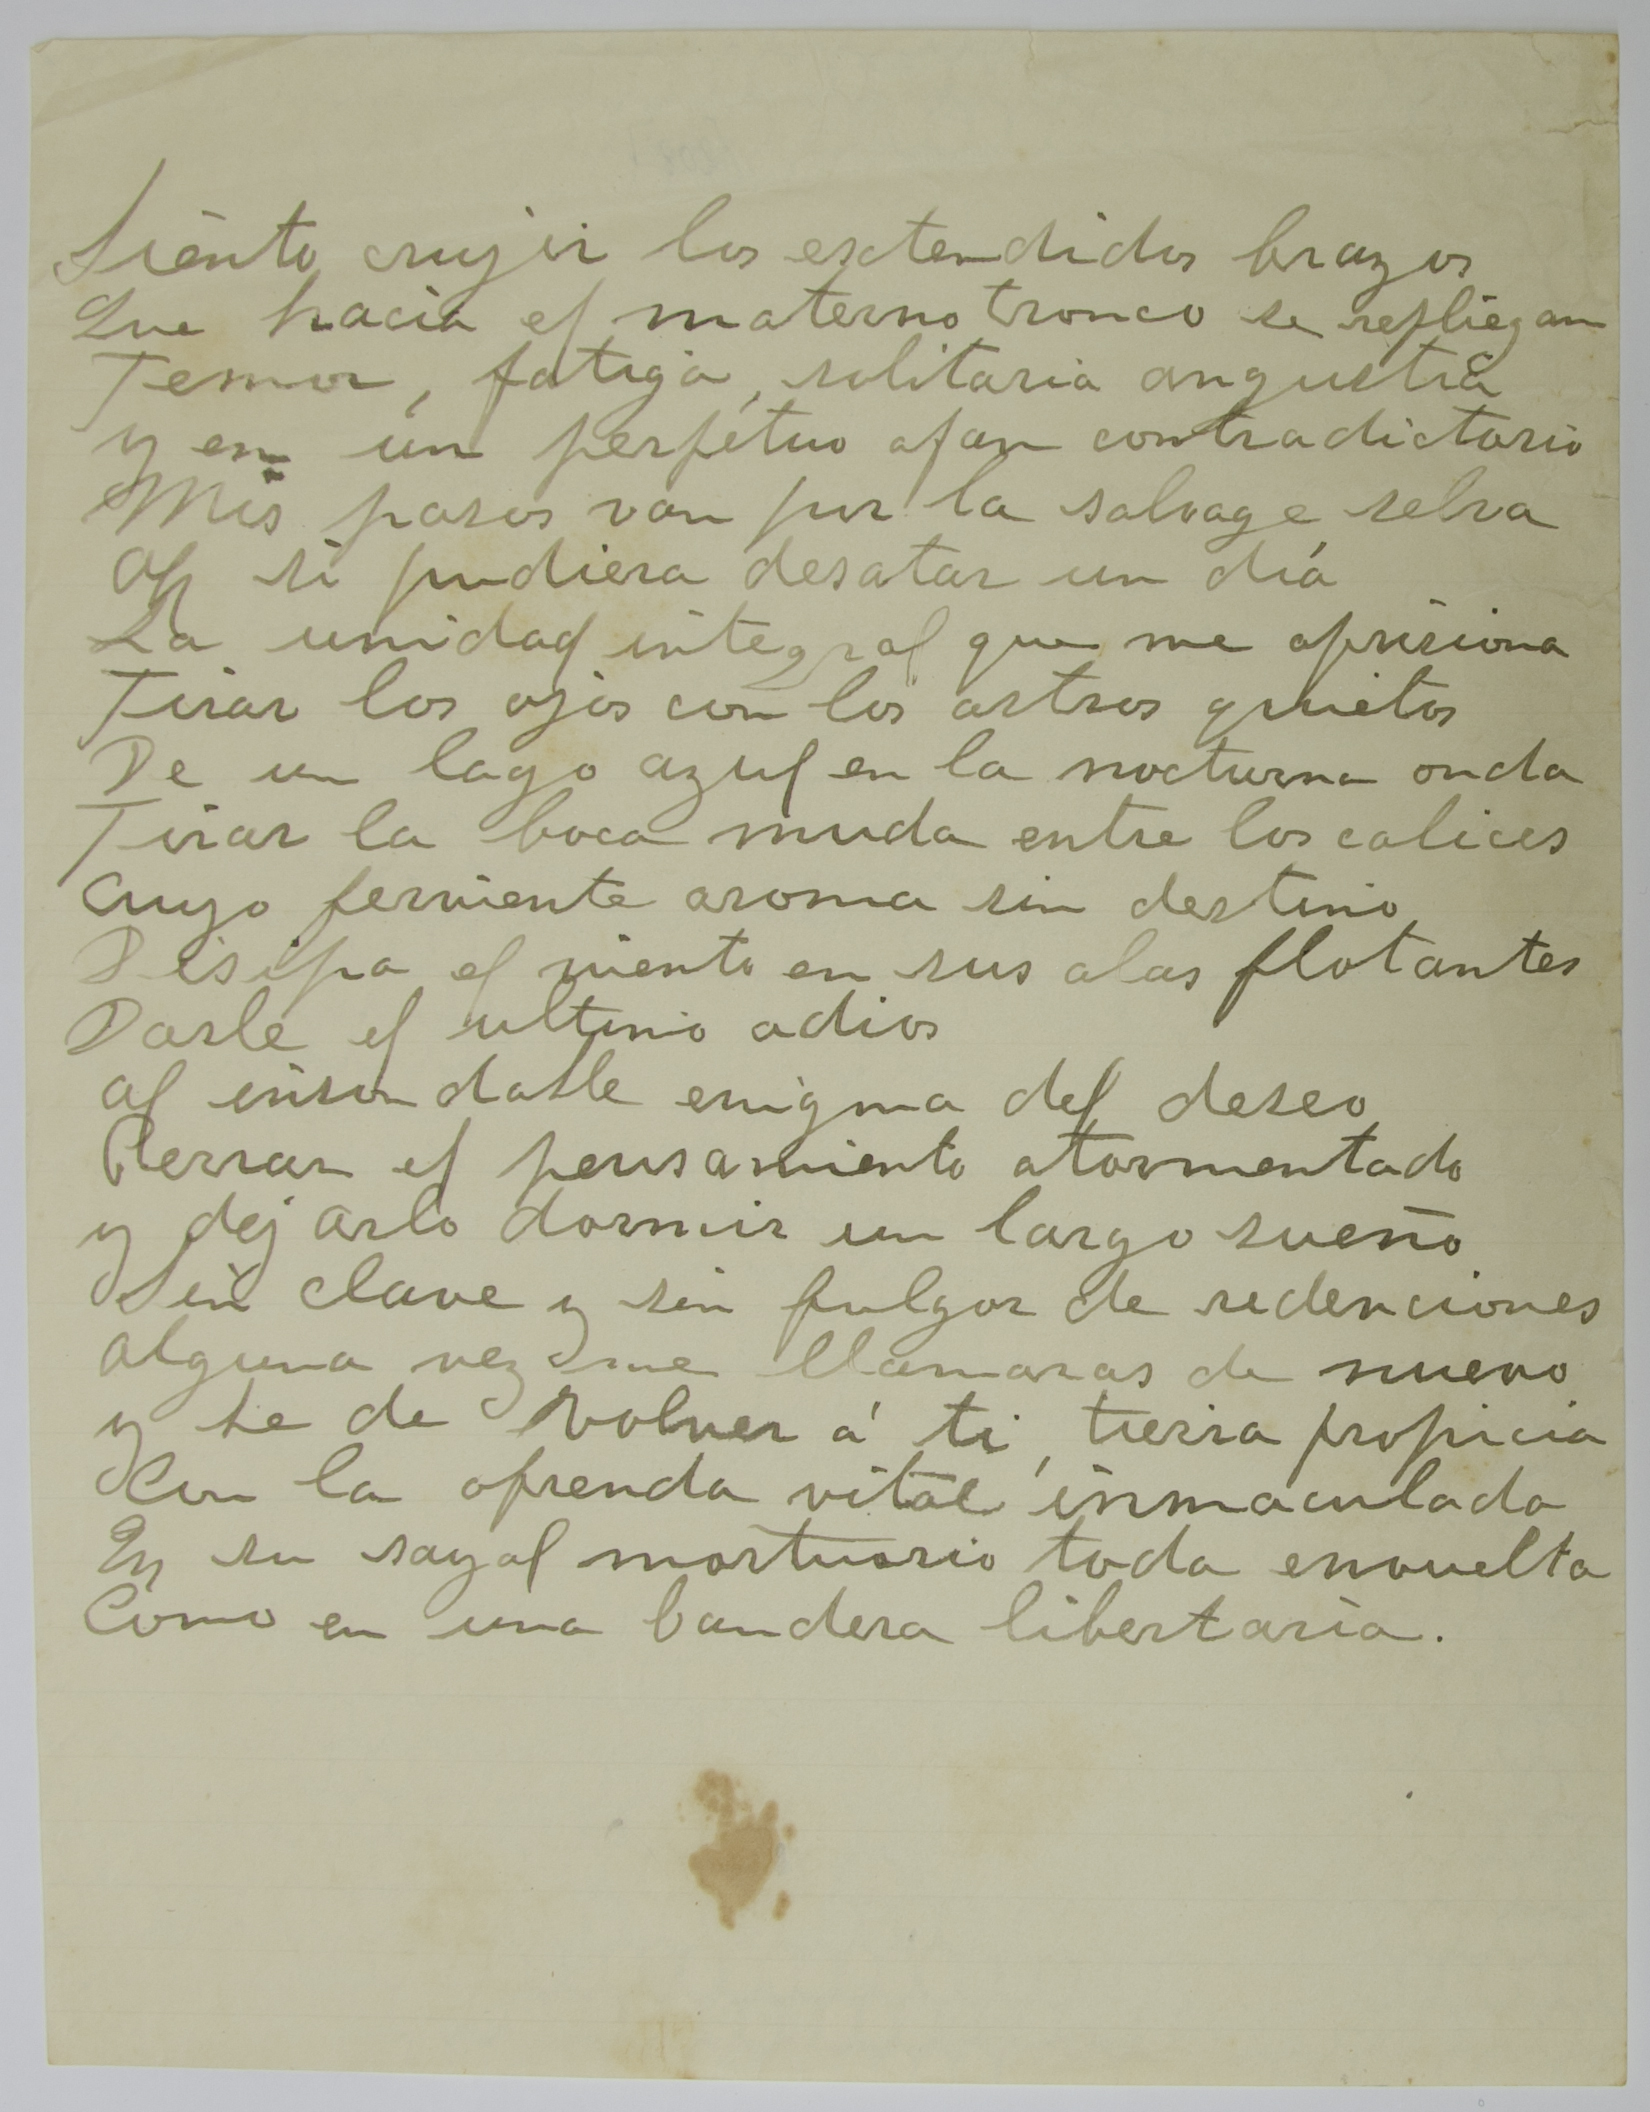 Siento crujir los extendidos brazos
Que hacia el materno tronco se repliegan
Temor, fatiga, solitaria angustia
y en un perpétuo afan contradictorio
Mis pasos van por la salvage selva
Oh si pudiera desatar un día
La unidad integral que me aprisiona
Tirar los ojos con los astros quietos
De un lago azul en la nocturna onda
Tirar la boca muda entre los calices
Cuyo ferviente aroma sin destino
Disipa el viento en sus alas flotantes
Darle el ultimo adios
al insondable enigma del deseo
Cerrar el pensamiento atormentado
y dejarlo dormir un largo sueño
Sin clave y sin fulgor de redenciones
alguna vez me llamaras de nuevo
y he de volver á ti, tierra propicia
Con la ofrenda vital inmaculada
En su sayal mortuorio toda envuelta
Como en una bandera libertaria.